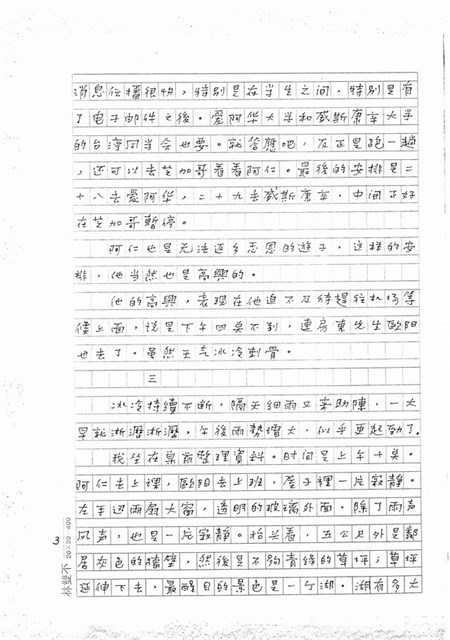 消息传播很快，特别是在学生之间，特别是有
了电子邮件之後。爱阿华大学和威斯康辛大学
的台湾同学会也要。就答應吧，反正是跑一趟
，还可以去芝加哥看看阿仁。最後的安排是二
十八去爱阿华，二十九去威斯康辛，中间正好
在芝加哥暫停。
阿仁也是无法返乡 的遊子，这样的安
排，他当然也是高興的。
他的高興，表现在他迫不及待趕往机场等
候上面，说是上午四點不到，連房東先生歐陽
也去了。虽然天气冰冷刺骨。
三
冰冷持續不断，隔天细雨又来助陣，一大
早就淅瀝淅瀝，午後雨勢增大，似乎更起劲了。
我坐在桌前整理資料。时间是上午十點。
阿仁去上课，歐阳去上班，屋子裡一片寂静。
左手边兩扇大窗，透明的玻璃外面，除了雨声
风声，也是一片寂静。抬头看，五公尺外是鄰
居灰色的牆壁，然後是不夠青绿的草坪；草坪
延伸上去，最醒目的景色是一个湖。湖有多大
3
林双不 20×20 400